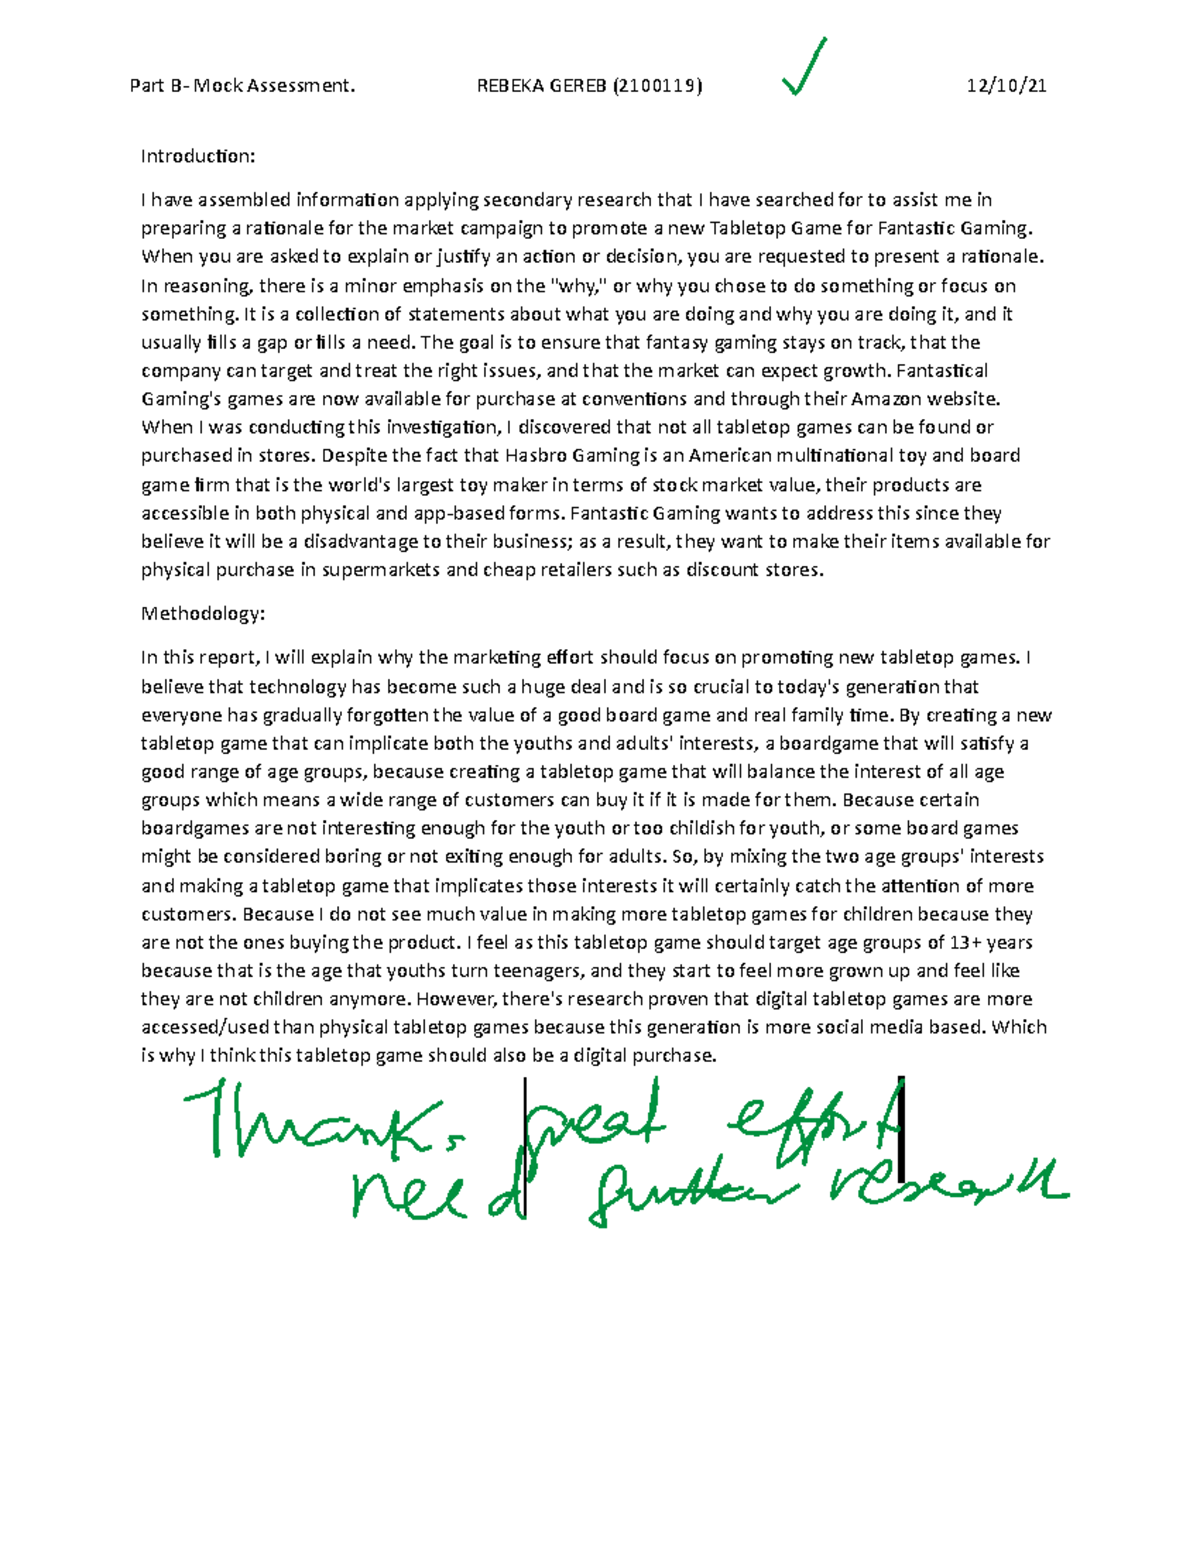 Part B- Mock Assessment. REBEKA GEREB (2100119) 12/10/21
Introduction:
I have assembled information applying secondary research that I have searched for to assist me in
preparing a rationale for the market campaign to promote a new Tabletop Game for Fantastic Gaming.
When you are asked to explain or justify an action or decision, you are requested to present a rationale.
In reasoning, there is a minor emphasis on the "why," or why you chose to do something or focus on
something. It is a collection of statements about what you are doing and why you are doing it, and it
usually fills a gap or fills a need. The goal is to ensure that fantasy gaming stays on track, that the
company can target and treat the right issues, and that the market can expect growth. Fantastical
Gaming's games are now available for purchase at conventions and through their Amazon website.
When I was conducting this investigation, I discovered that not all tabletop games can be found or
purchased in stores. Despite the fact that Hasbro Gaming is an American multinational toy and board
game firm that is the world's largest toy maker in terms of stock market value, their products are
accessible in both physical and app-based forms. Fantastic Gaming wants to address this since they
believe it will be a disadvantage to their business; as a result, they want to make their items available for
physical purchase in supermarkets and cheap retailers such as discount stores.
Methodology:
In this report, I will explain why the marketing effort should focus on promoting new tabletop games. I
believe that technology has become such a huge deal and is so crucial to today's generation that
everyone has gradually forgotten the value of a good board game and real family time. By creating a new
tabletop game that can implicate both the youths and adults' interests, a boardgame that will satisfy a
good range of age groups, because creating a tabletop game that will balance the interest of all age
groups which means a wide range of customers can buy it if it is made for them. Because certain
boardgames are not interesting enough for the youth or too childish for youth, or some board games
might be considered boring or not exiting enough for adults. So, by mixing the two age groups' interests
and making a tabletop game that implicates those interests it will certainly catch the attention of more
customers. Because I do not see much value in making more tabletop games for children because they
are not the ones buying the product. I feel as this tabletop game should target age groups of 13+ years
because that is the age that youths turn teenagers, and they start to feel more grown up and feel like
they are not children anymore. However, there's research proven that digital tabletop games are more
accessed/used than physical tabletop games because this generation is more social media based. Which
is why I think this tabletop game should also be a digital purchase.
Thanks great effort
need further research